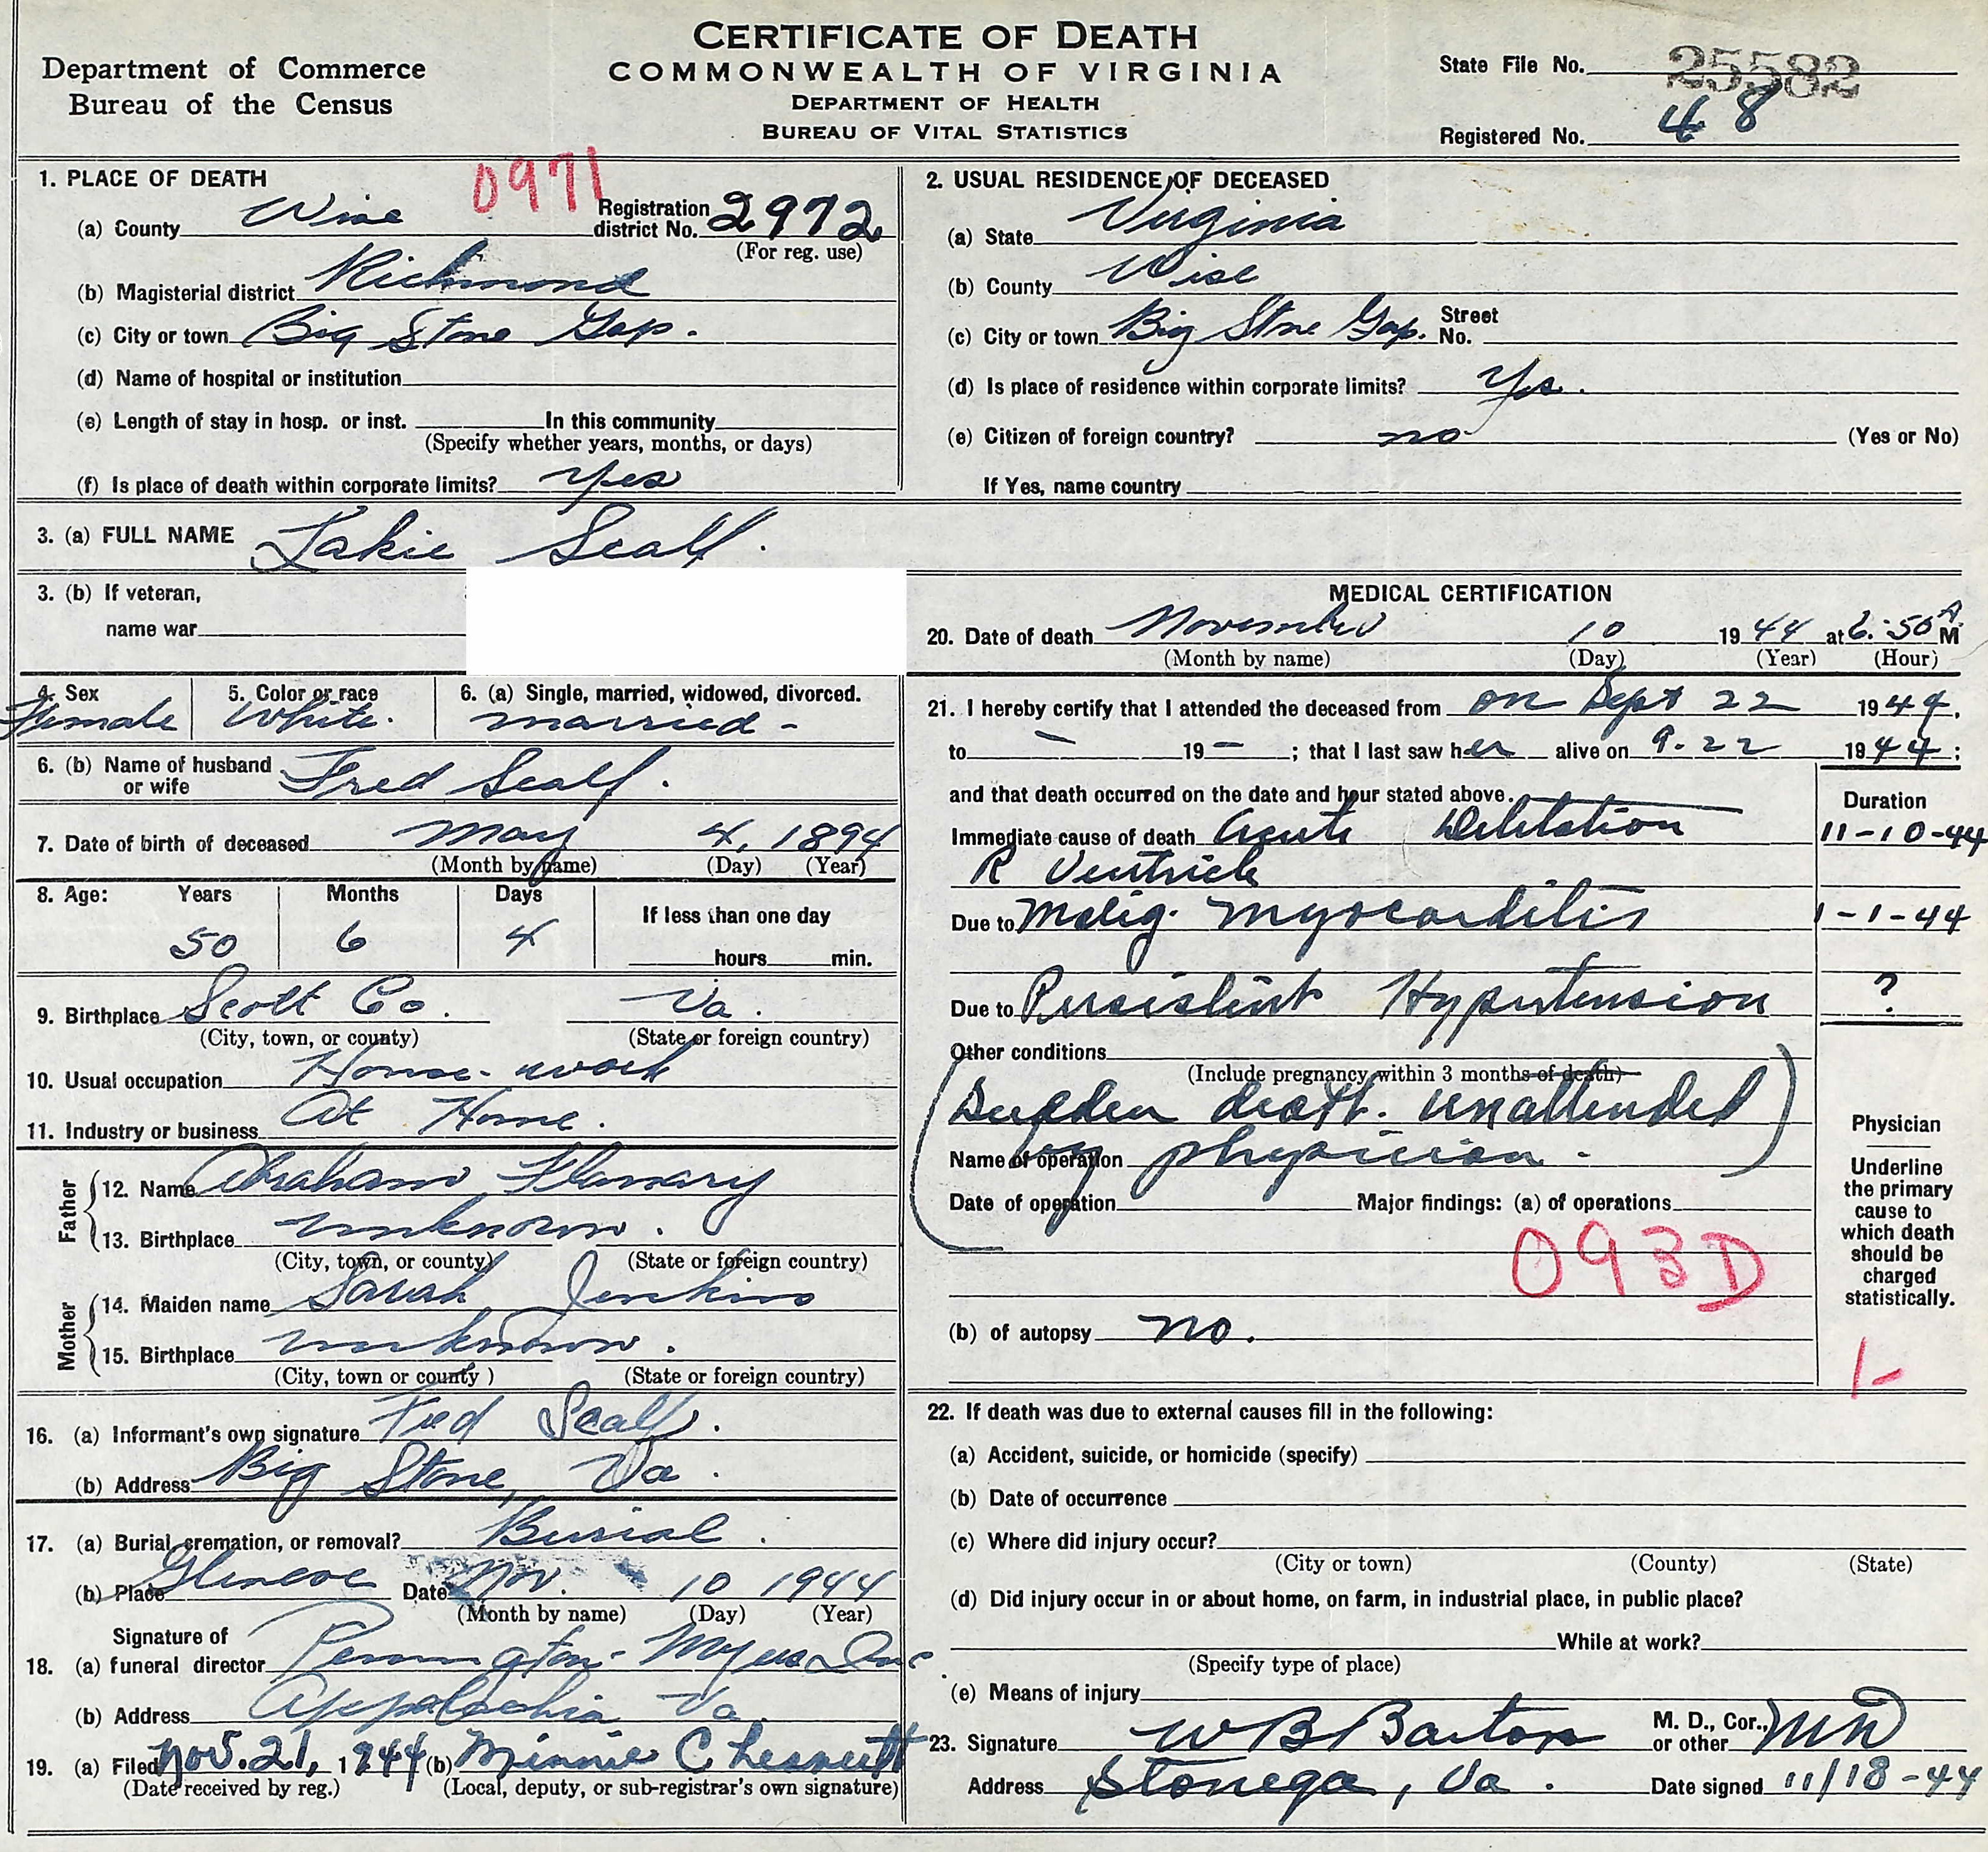 CERTIFICATE OF DEATH
COMMONWEALTH OF VIRGINIA
DEPARTMENT OF HEALTH
BUREAU OF VITAL STATISTICS
Department of Commerce
Bureau of the Census
State File No. 25582
Registered No. 48
1. PLACE OF DEATH 0971
(a) County Wise Registration district No. 2972
(For reg. use)
(b) Magisterial district Richmond
(c) City or town Big Stone Gap.
(d) Name of hospital or institution
(e) Length of stay in hosp. or inst. In this community
(Specify whether years, months, or days)
(f) Is place of death within corporate limits? yes
2. USUAL RESIDENCE OF DECEASED
(a) State Virginia
(b) County Wise
(c) City or town Big Stone Gap. Street No.
(d) Is place of residence within corporate limits? Yes.
(e) Citizen of foreign country? no (Yes or No)
If Yes, name country
3. (a) FULL NAME Lakie Scalf.
3. (b) If veteran,
name war
4. Sex 5. Color or race 6. (a) Single, married, widowed, divorced.
Female White. married -
6. (b) Name of husband or wife Fred Scalf.
7. Date of birth of deceased May 4, 1894
(Month by name) (Day) (Year)
8. Age: Years Months Days If less than one day
50 6 4 hours min.
9. Birthplace Scott Co. Va.
(City, town, or county) (State or foreign country)
10. Usual occupation House-work
11. Industry or business At Home.
Father
12. Name Abraham Flanary
13. Birthplace unknown.
(City, town, or county) (State or foreign country)
Mother
14. Maiden name Sarah Jenkins
15. Birthplace unknown.
(City, town or county ) (State or foreign country)
16. (a) Informant's own signature Fred Scalf.
(b) Address Big Stone, Va.
17. (a) Burial, cremation, or removal? Burial.
(b) Place Date Nov. 10 1944
(Month by name) (Day) (Year)
18. (a) Signature of funeral director Pennington-Myers Inc.
(b) Address Appalachia Va.
19. (a) Filed Nov. 21, 1944 (b) Minnie Chesnutt
(Date received by reg.) (Local, deputy, or sub-registrar's own signature)
MEDICAL CERTIFICATION
20. Date of death November 10 1944 at 6:50 A. M
(Month by name) (Day) (Year) (Hour)
21. I hereby certify that I attended the deceased from on Sept 22 1944,
to - 19 - ; that I last saw her alive on 9-22 1944;
and that death occurred on the date and hour stated above. Duration
Immediate cause of death Acute Dilitation 11-10-44
R Ventricle
Due to Malig. Myocarditis 1-1-44
Due to Persistent Hypertension ?
Other conditions
(Include pregnancy within 3 months of death)
(Sudden death. unattended
by physician.)
Name of operation
Date of operation Major findings: (a) of operations
093D
(b) of autopsy no.
Physician
Underline
the primary
cause to
which death
should be
charged
statistically.
1-
22. If death was due to external causes fill in the following:
(a) Accident, suicide, or homicide (specify)
(b) Date of occurrence
(c) Where did injury occur?
(City or town) (County) (State)
(d) Did injury occur in or about home, on farm, in industrial place, in public place?
While at work?
(Specify type of place)
(e) Means of injury
23. Signature W B Barton M. D., Cor., or other MD
Address Stonega, Va. Date signed 11/18-44